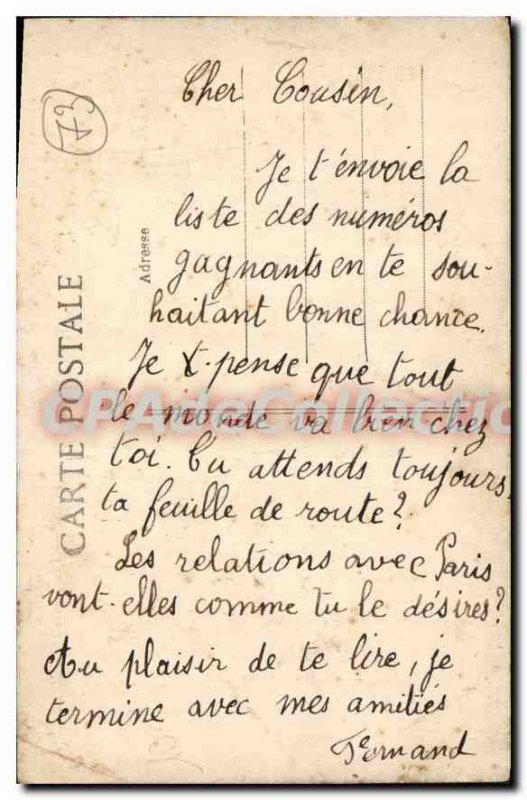 Cher Cousin,
Je t'envoie la
liste des numéros
gagnants en te sou-
haitant bonne chance.
Je pense que tout
le monde va bien chez
toi. Tu attends toujours
ta feuille de route?
Les relations avec Paris
vont-elles comme tu le désires?
Au plaisir de te lire, je
termine avec mes amitiés
Fernand
CARTE POSTALE
Adresse
73
CPAdeCollection